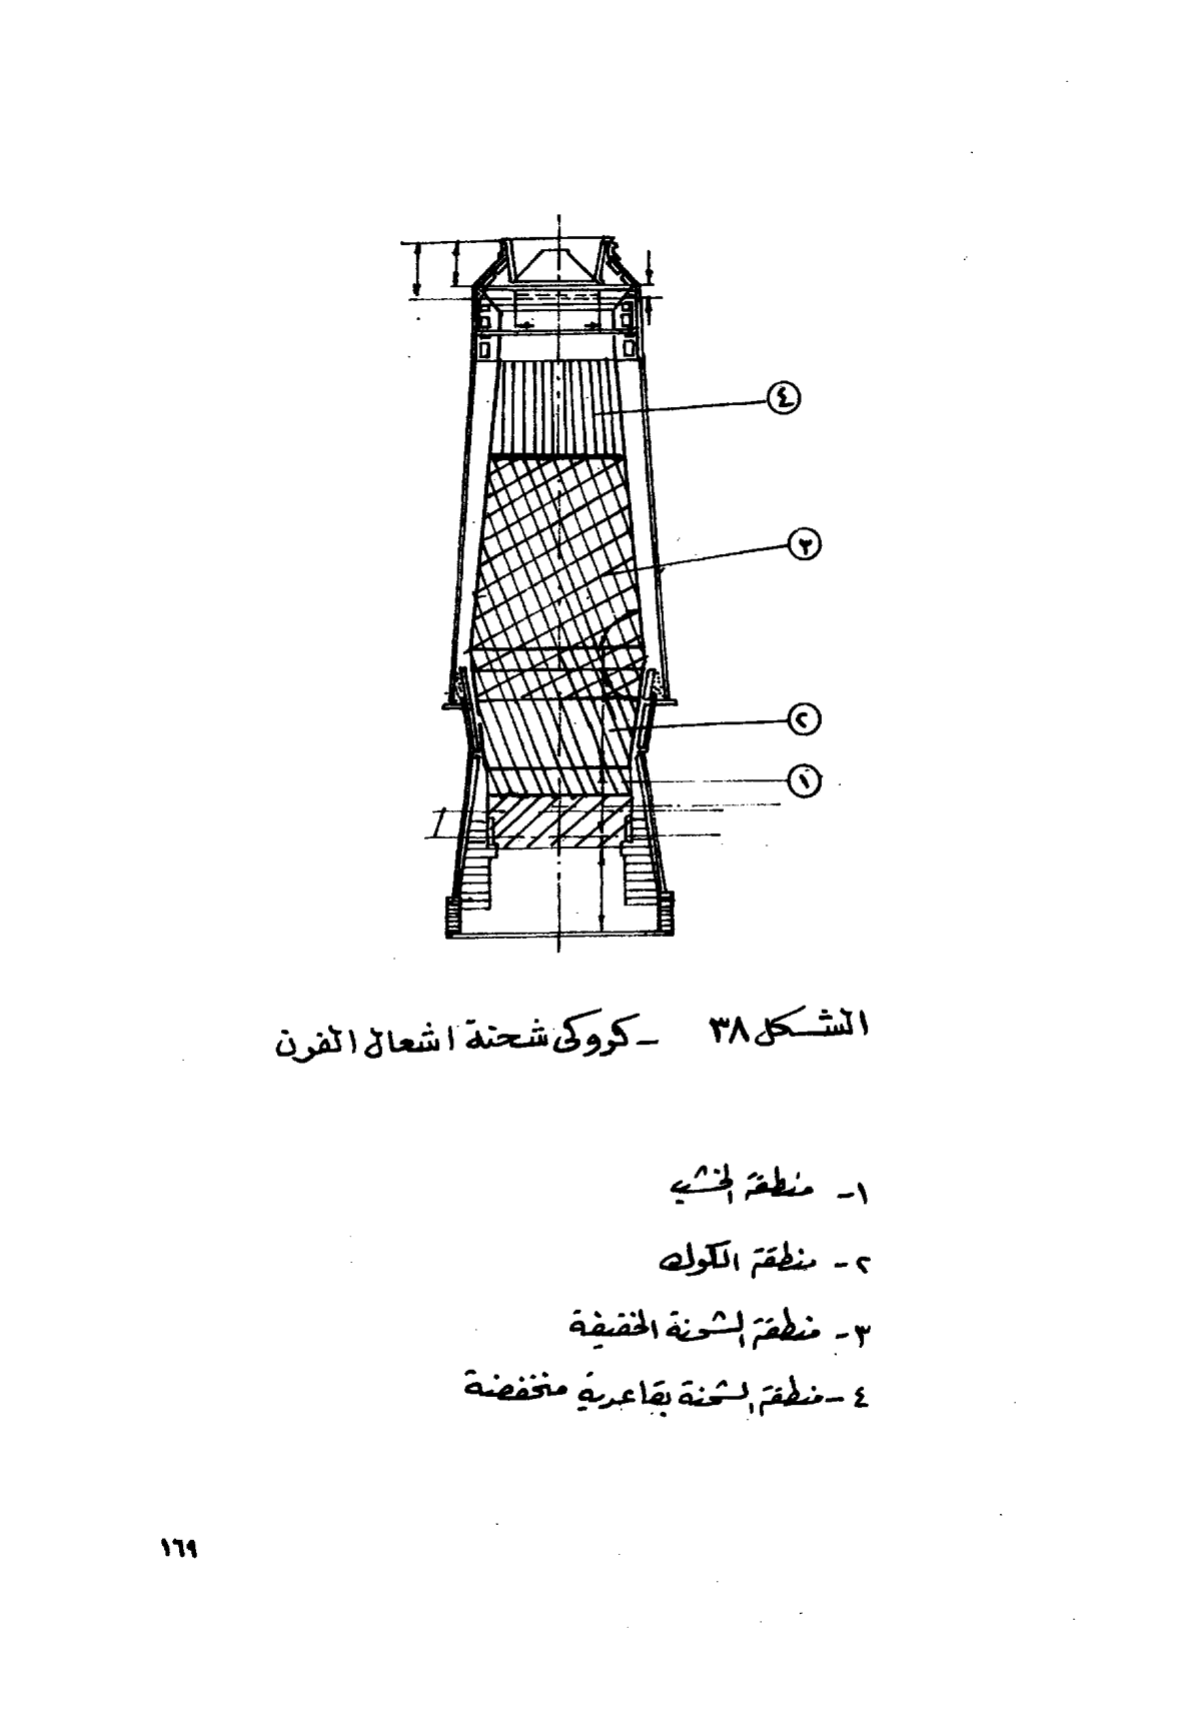 ٤
٣
٢
١
الشكل ٣٨ - كروكى شحنة اشعال الفرن
١- منطقة الخشب
٢- منطقة الكوك
٣- منطقة الشحنة الخفيفة
٤- منطقة الشحنة بقاعدية منخفضة
١٦٩